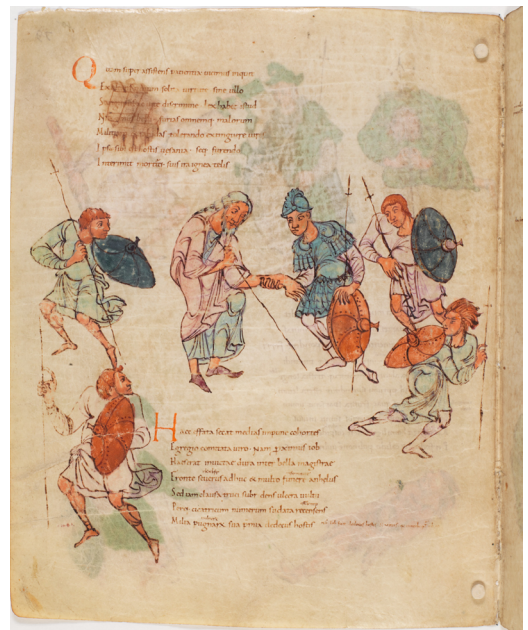 Quam super assistens patientia vicimus inquit
Ex solita virtute sine ullo
discrimine lex habet istud
furias omnemq; malorum
tolerando extinguere vires
Ipsa sibi est hostis vesania seq; furendo
Interimit moritq; suis ira ignea telis
Haec effata secat medias inpune cohortes
Egregio comitata viro nam proximus iob
Haeserat invictae dura inter bella magistrae
Fronte severus adhuc et multo funere anhelus
Sed iam clausa truci subridens ulcera vultu
Perq; cicatricum numerum sudata recensens
Milia pugnarum sua praemia dedecus hostis